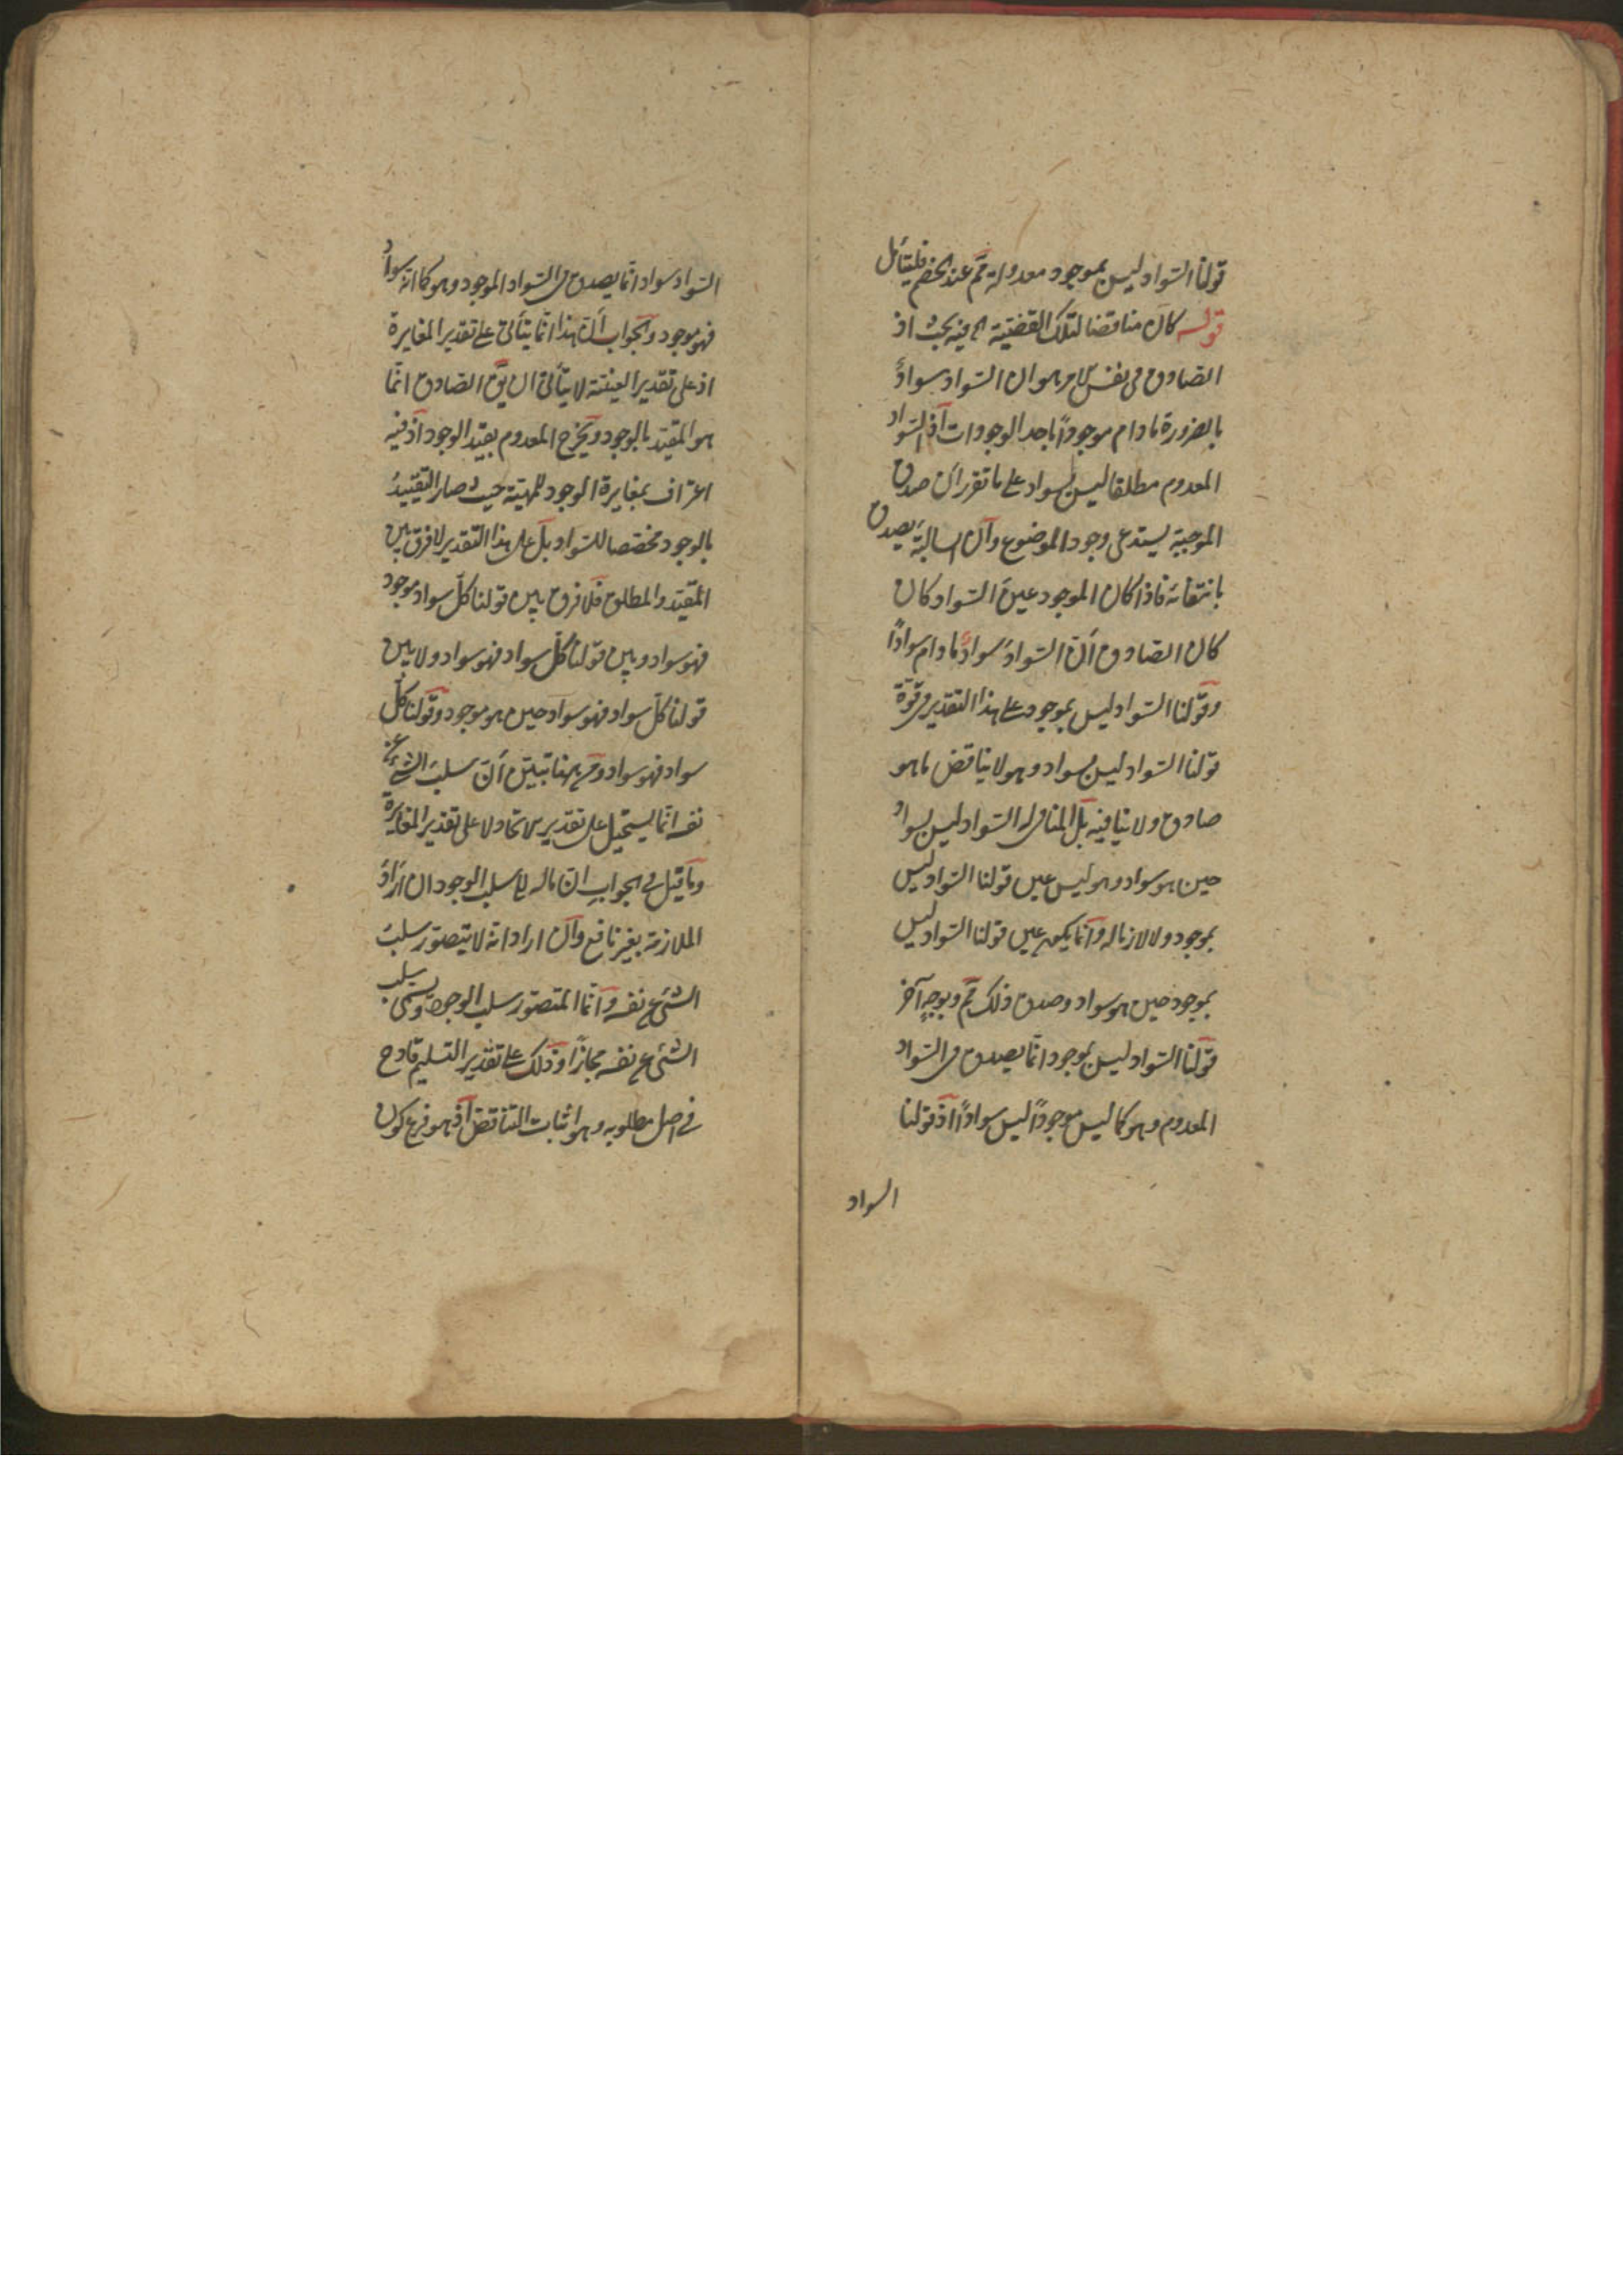 قولنا السّواد ليس بموجود معدولة مم عند الخصم فليتأمل
قوله كان مناقضا لتلك القضيّة الخ فيه بحث اذ
الصادق فى نفس الامر هو ان السّواد سوادٌ
بالضرورة ما دام موجوداً باحد الوجودات اذ السّواد
المعدوم مطلقا ليس بسواد على ما تقرر انّ صدق
الموجبة يستدعى وجود الموضوع وانّ السالبة يصدق
بانتفائه فاذا كان الموجود عين السّواد كان
كان الصادق انّ السّواد سوادٌ ما دام سواداً
وقولنا السّواد ليس بموجود على هذا التقدير فى قوّة
قولنا السّواد ليس بسواد وهو لا يناقض ما هو
صادق ولا ينافيه بل المنافى له السّواد ليس بسوادٍ
حين هو سواد وهو ليس عين قولنا السّواد ليس
بموجود ولا لازما له وانّما يكون عين قولنا السّواد ليس
بموجود حين هو سواد وصدق ذلك مم وبوجهٍ آخر
قولنا السّواد ليس بموجود انّما يصدق فى السّواد
المعدوم وهو كما ليس موجوداً ليس سواداً اذ قولنا
السواد
السّواد سواد انّما يصدق فى السّواد الموجود وهو كما انّه سوادٌ
فهو موجود والجواب انّ هذا انّما يتأتى على تقدير المغايرة
اذ على تقدير العينيّة لا يتأتى ان يقم الصادق انّما
هو المقيّد بالوجود ويخرج المعدوم بقيد الوجود اذ فيه
اعتراف بمغايرة الوجود للمهيّة حيث صار التقييدُ
بالوجود مخصّصا للسّواد بل على هذا التقدير لا فرق بين
المقيّد والمطلق فلا فرق بين قولنا كلّ سواد موجود
فهو سواد وبين قولنا كلّ سواد فهو سواد ولا بين
قولنا كلّ سواد فهو سواد حين هو موجود وقولنا كلّ
سواد فهو سواد ومن ههنا تبيّن انّ سلب الشئ عن
نفسه انّما يستحيل على تقدير الاتحاد لا على تقدير المغايرة
وما قيل فى الجواب انّ مآله الى سلب الوجود ان اراد
الملازمة بغير نافع وان اراد انّه لا يتصوّر سلبُ
الشئ عن نفسه وانّما المتصوّر سلب الوجود ويسمى سلب
الشئ عن نفسه مجازاً وذلك على تقدير التسليم قادح
فى اصل مطلوبه وهو اثبات التناقض اذ هو فرع كون